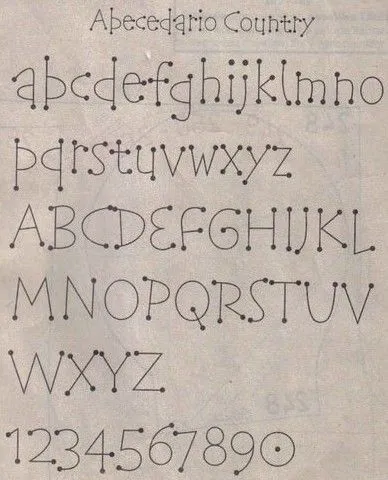 Abecedario Country
abcdefghijklmno
pqrstuvwxyz
ABCDEFGHIJKL
MNOPQRSTUV
WXYZ
1234567890